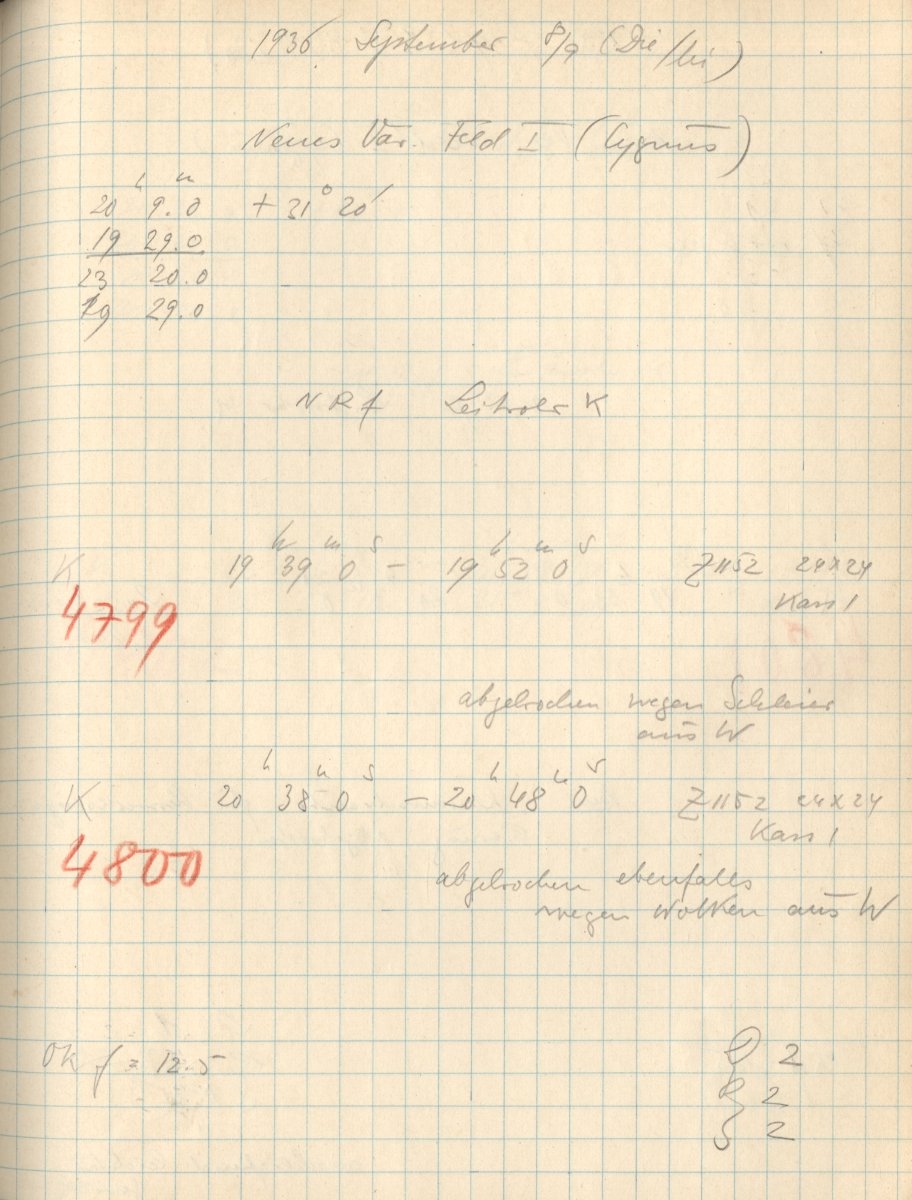 1936 September 8/9 (Die/Mi)
Neues Var. Feld I (Cygnus)
20 h 9.0 m + 31° 20'
19 29.0
23 20.0
19 29.0
NRf Leitrohr K
K 19 h 39 m 0 s – 19 h 52 m 0 s Z1152 24x24
Kass 1
4799
abgebrochen wegen Schleier
aus W
K 20 h 38 m 0 s – 20 h 48 m 0 s Z1152 24x24
Kass 1
4800
abgebrochen ebenfalls
wegen Wolken aus W
Ok f = 12.5
D 2
R 2
S 2